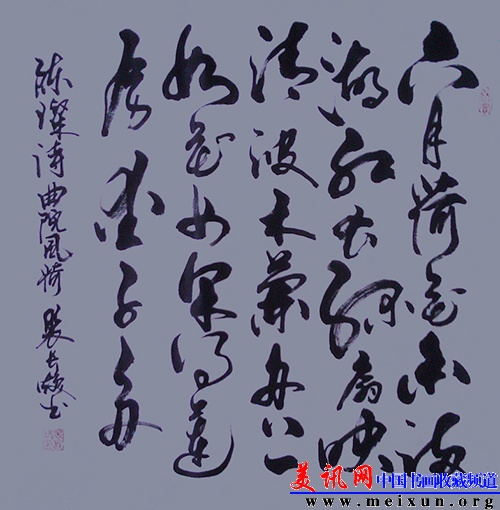 六月荷花香满
湖红衣绿扇映
清波木兰舟上
如花女采得莲
房爱子多
陈璨诗曲院风荷 书
美讯网 中国书画收藏频道
www.meixun.org